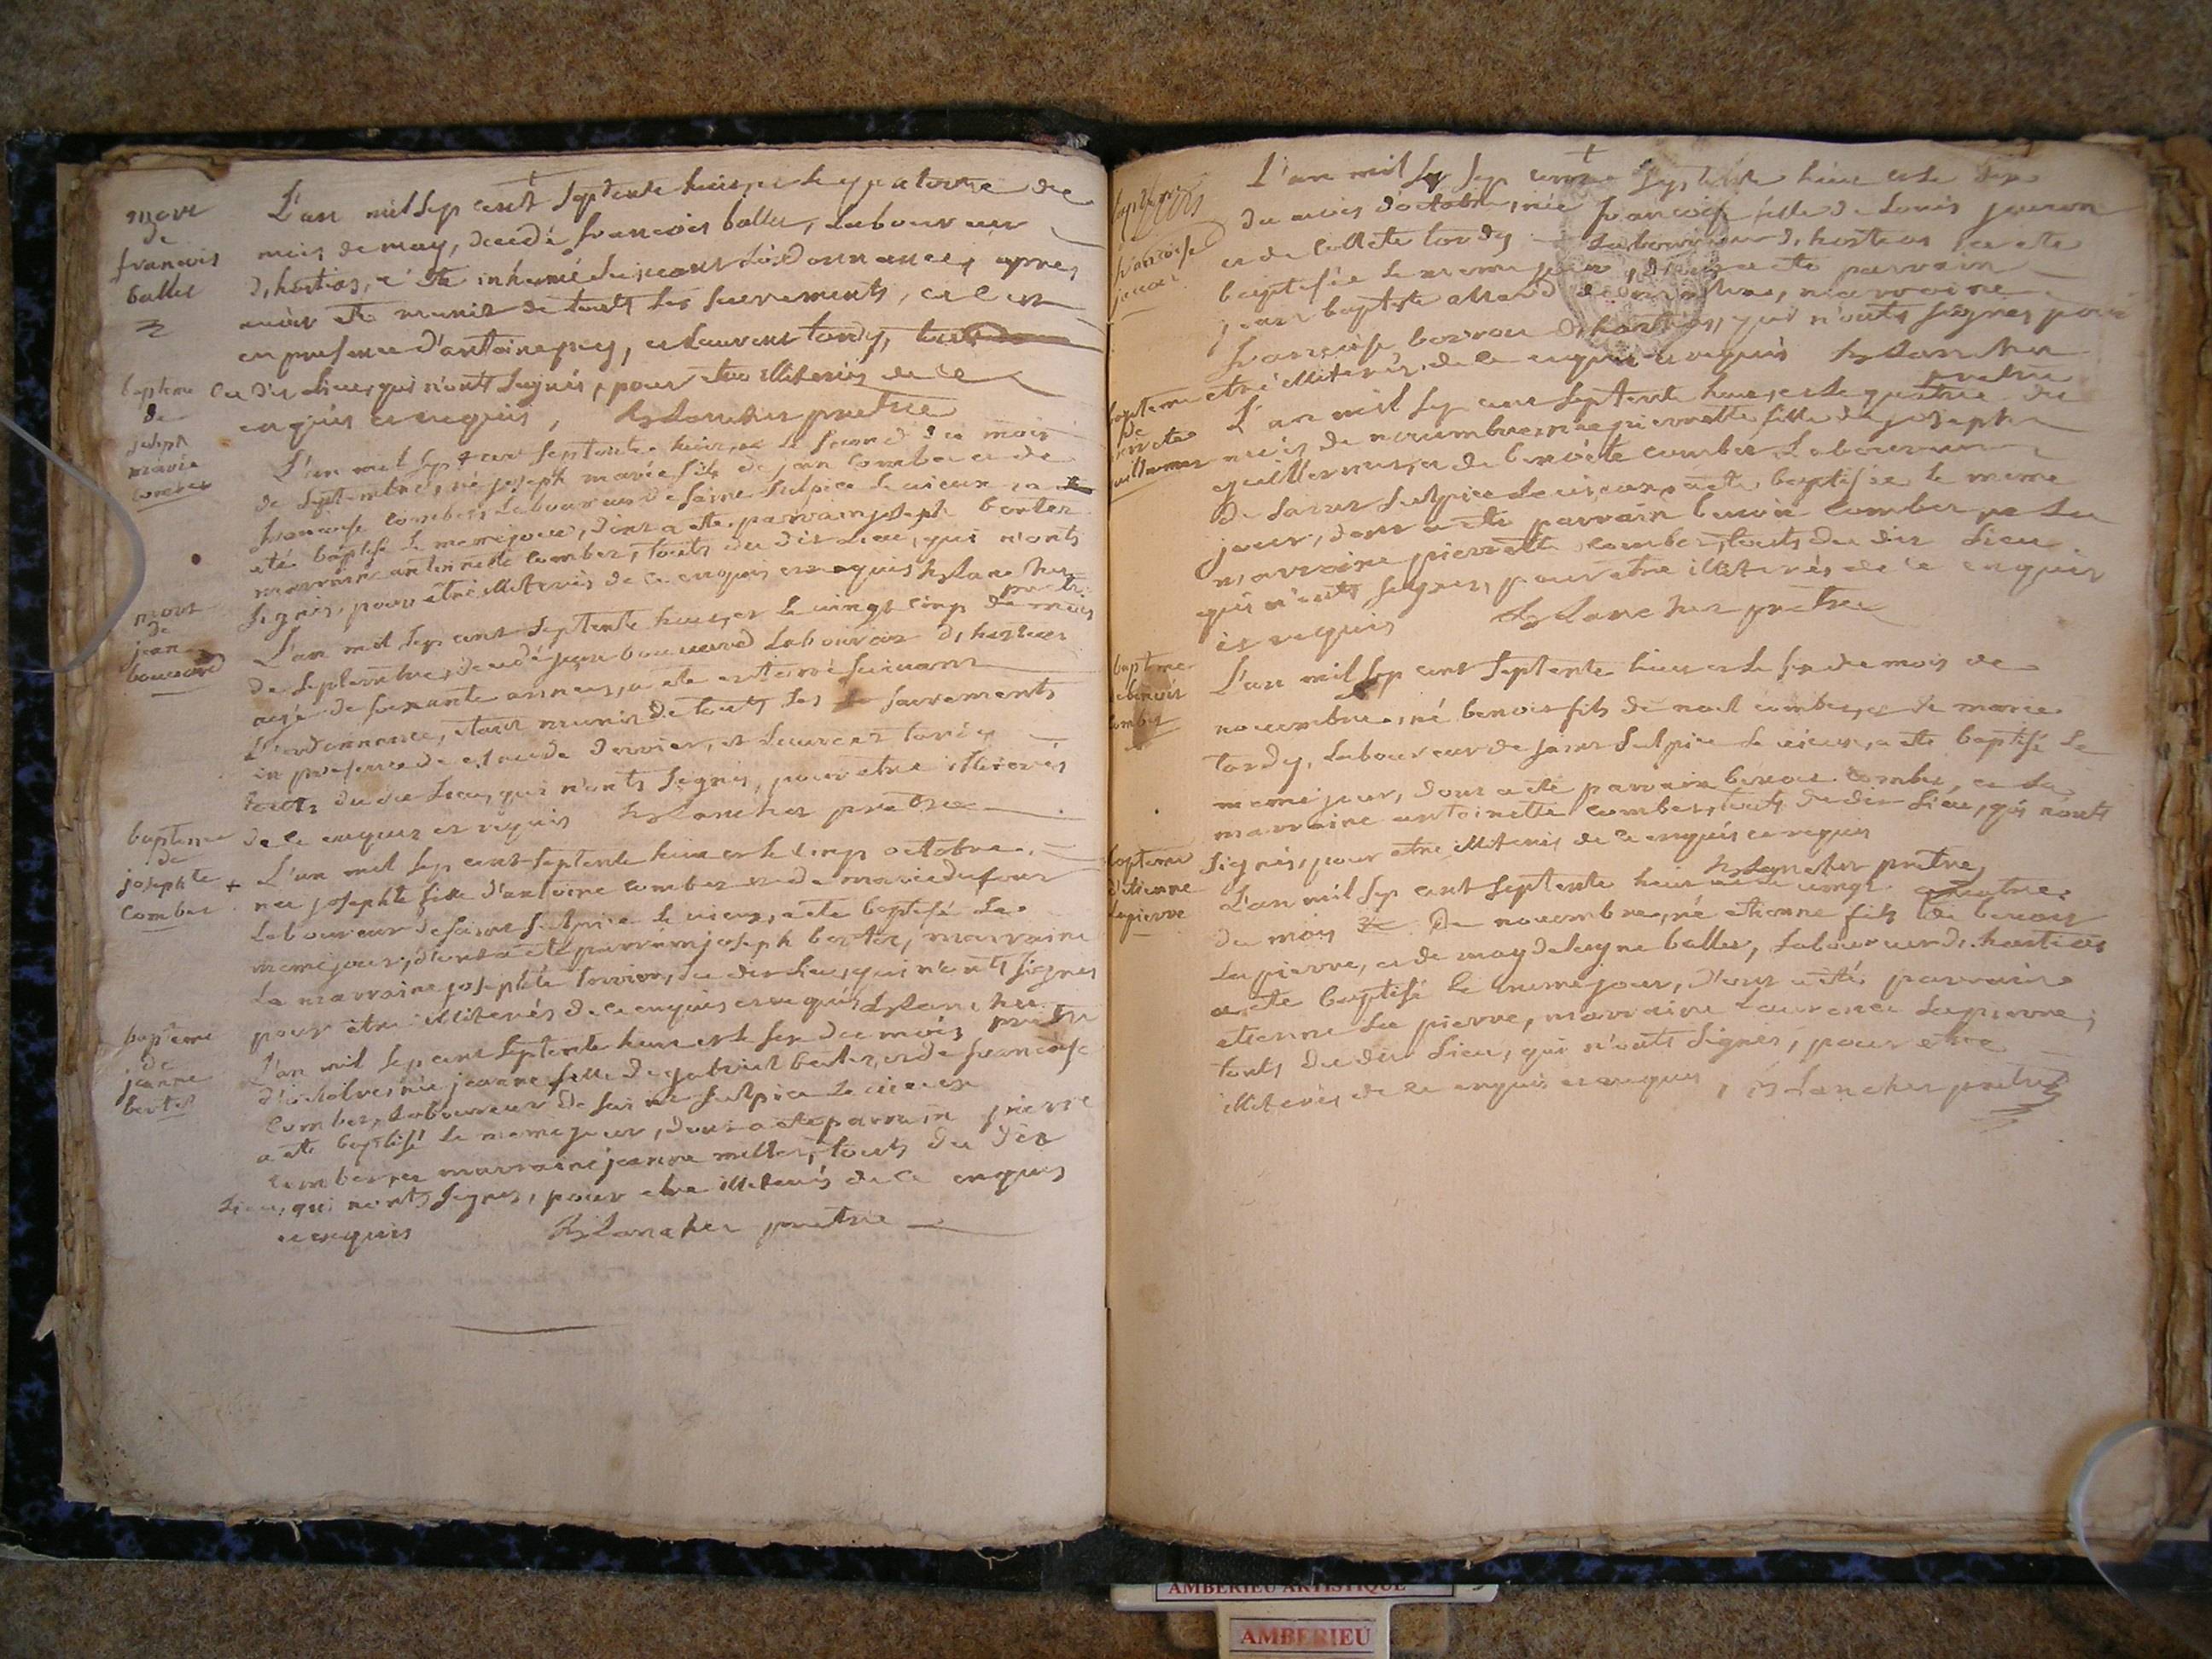 mort
de
francois
ballet
L'an mil sep cent septente huit, et le quatorze du
mois de may, decedé francois ballet, laboureur
d'hostias, a été inhumé suivant l'ordonnance, apres
avoir eté munit de touts les sacrements, et
en presence d'antoine pey, et laurent tardy,
du dit lieu, qui n'onts signés, pour etre illiterés de ce
enquis et requis, Blancher pretre
bapteme
de
joseph
marie
comber
L'an mil sep cent septente huit, et le second du mois
de septembre, né joseph marie fils de jean comber et de
francoise comber, laboureur de saint sulpice le vieux, a
eté baptisé le meme jour, dont a eté parrain joseph borter
marraine antoinette comber, touts du dit lieu, qui n'onts
signés, pour etre illiterés de ce enquis et requis Blancher
pretre
mort
de
jean
bouvard
L'an mil sep cent septente huit, et le vingt cinq du mois
de septembre, decedé jean bouvard laboureur d'hostias
agé de soixante annees, a eté enterré suivant
l'ordonnance, etant munit de touts les sacrements
en presence de claude dervier, et laurent tardy
touts du dit lieu, qui n'onts signés, pour etre illiterés
de ce enquis et requis Blancher pretre
bapteme
de
josephte
comber
+ L'an mil sep cent septente huit et le cinq octobre
née josephte fille d'antoine comber et de marie dufour
laboureur de saint sulpice le vieux, a eté baptisé le
meme jour, dont a eté parrain joseph borter, marraine
la marraine josephte tervier, du dit lieu, qui n'onts signés
pour etre illiterés de ce enquis et requis Blancher
pretre
bapteme
de
jeanne
berter
L'an mil sep cent septente huit et le six du mois
d'octobre, née jeanne fille de gabriel berter, et de francoise
comber, laboureur de saint sulpice le vieux
a eté baptisé le meme jour, dont a eté parrain pierre
comber, et marraine jeanne millet, touts du dit
lieu, qui n'onts signés, pour etre illiterés de ce enquis
et requis Blancher pretre
bapteme
francoise
L'an mil sep cent septente huit et le dix
du mois d'octobre, née francoise fille de Louis
et de Collete tardy laboureur d'hostias a eté
baptisée le meme jour, dont a eté parrain
jean baptiste allard, marraine
francoise d'hostias, qui n'onts signés pour
etre illiterés de ce enquis et requis Blancher
pretre
bapteme
de
guillermet
L'an mil sep cent septente huit, et le quatre du
mois de novembre, née pierrette fille de joseph
guillermet, et de benoite comber laboureur
de saint sulpice le vieux, a eté baptisée le meme
jour, dont a eté parrain benoit comber, et la
marraine pierrette comber, touts du dit lieu
qui n'onts signés, pour etre illiterés de ce enquis
et requis Blancher pretre
bapteme
de benoit
comber
L'an mil sep cent septente huit et le six du mois de
novembre, né benoit fils de noel comber, et de marie
tardy, laboureur de saint sulpice le vieux, a eté baptisé le
meme jour, dont a eté parrain benoit comber, et la
marraine antoinette comber, touts du dit lieu, qui n'onts
signés, pour etre illiterés de ce enquis et requis
Blancher pretre
bapteme
d'etienne
lapierre
L'an mil sep cent septente huit et le vingt quatre
du mois de novembre, né etienne fils de benoit
lapierre, et de magdelagne ballet, laboureur d'hostias
a eté baptisé le meme jour, dont a été parrain
etienne la pierre, marraine laurence lapierre,
touts du dit lieu, qui n'onts signés, pour etre
illiterés de ce enquis et requis, Blancher pretre
AMBERIEU ARTISTIQUE
AMBERIEU